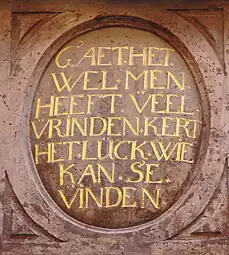 GAET·HET·
WEL·MEN·
HEEFT·VEEL
VRINDEN·KERT
HET·LUCK·WIE
KAN·SE·
VINDEN